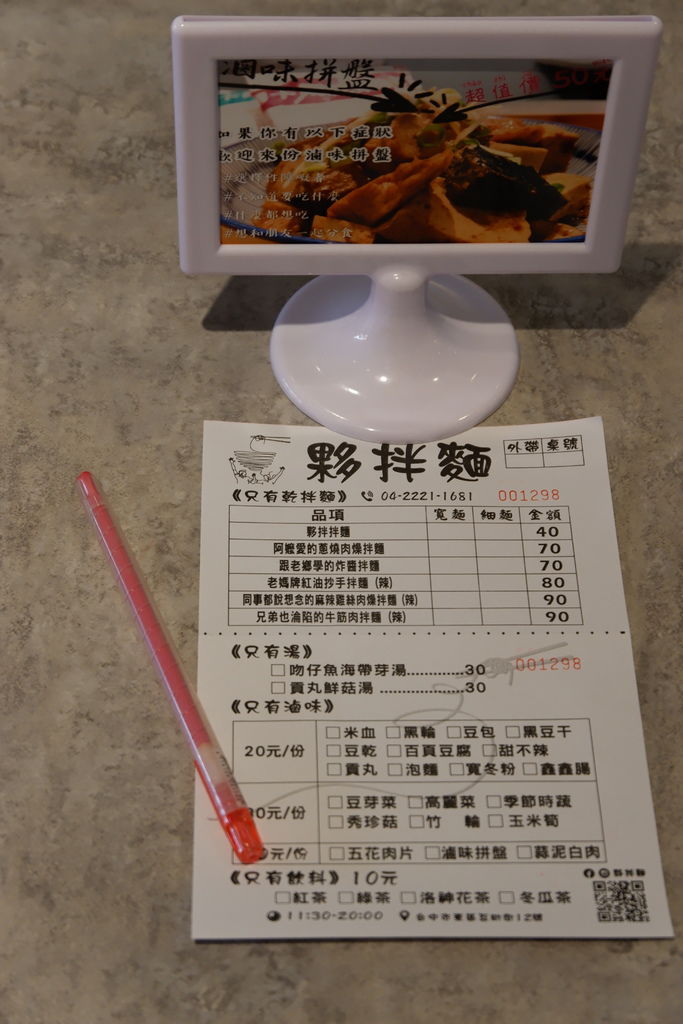 滷味拼盤
超值價 50元
如果你有以下症狀
歡迎來份滷味拼盤
#選擇性障礙者
#不知道要吃什麼
#什麼都想吃
#想和朋友一起分食
夥拌麵
外帶 桌號
《只有乾拌麵》 04-2221-1681 001298
品項 寬麵 細麵 金額
夥拌拌麵 40
阿嬤愛的蔥燒肉燥拌麵 70
跟老鄉學的炸醬拌麵 70
老媽牌紅油抄手拌麵 (辣) 80
同事都說想念的麻辣雞絲肉燥拌麵 (辣) 90
兄弟也淪陷的牛筋肉拌麵 (辣) 90
《只有湯》 001298
□吻仔魚海帶芽湯..............30
□貢丸鮮菇湯 ..................30
《只有滷味》
20元/份
□米血 □黑輪 □豆包 □黑豆干
□豆乾 □百頁豆腐 □甜不辣
□貢丸 □泡麵 □寬冬粉 □鑫鑫腸
0元/份
□豆芽菜 □高麗菜 □季節時蔬
□秀珍菇 □竹輪 □玉米筍
0元/份 □五花肉片 □滷味拼盤 □蒜泥白肉
《只有飲料》10元
□紅茶 □綠茶 □洛神花茶 □冬瓜茶
11:30-20:00